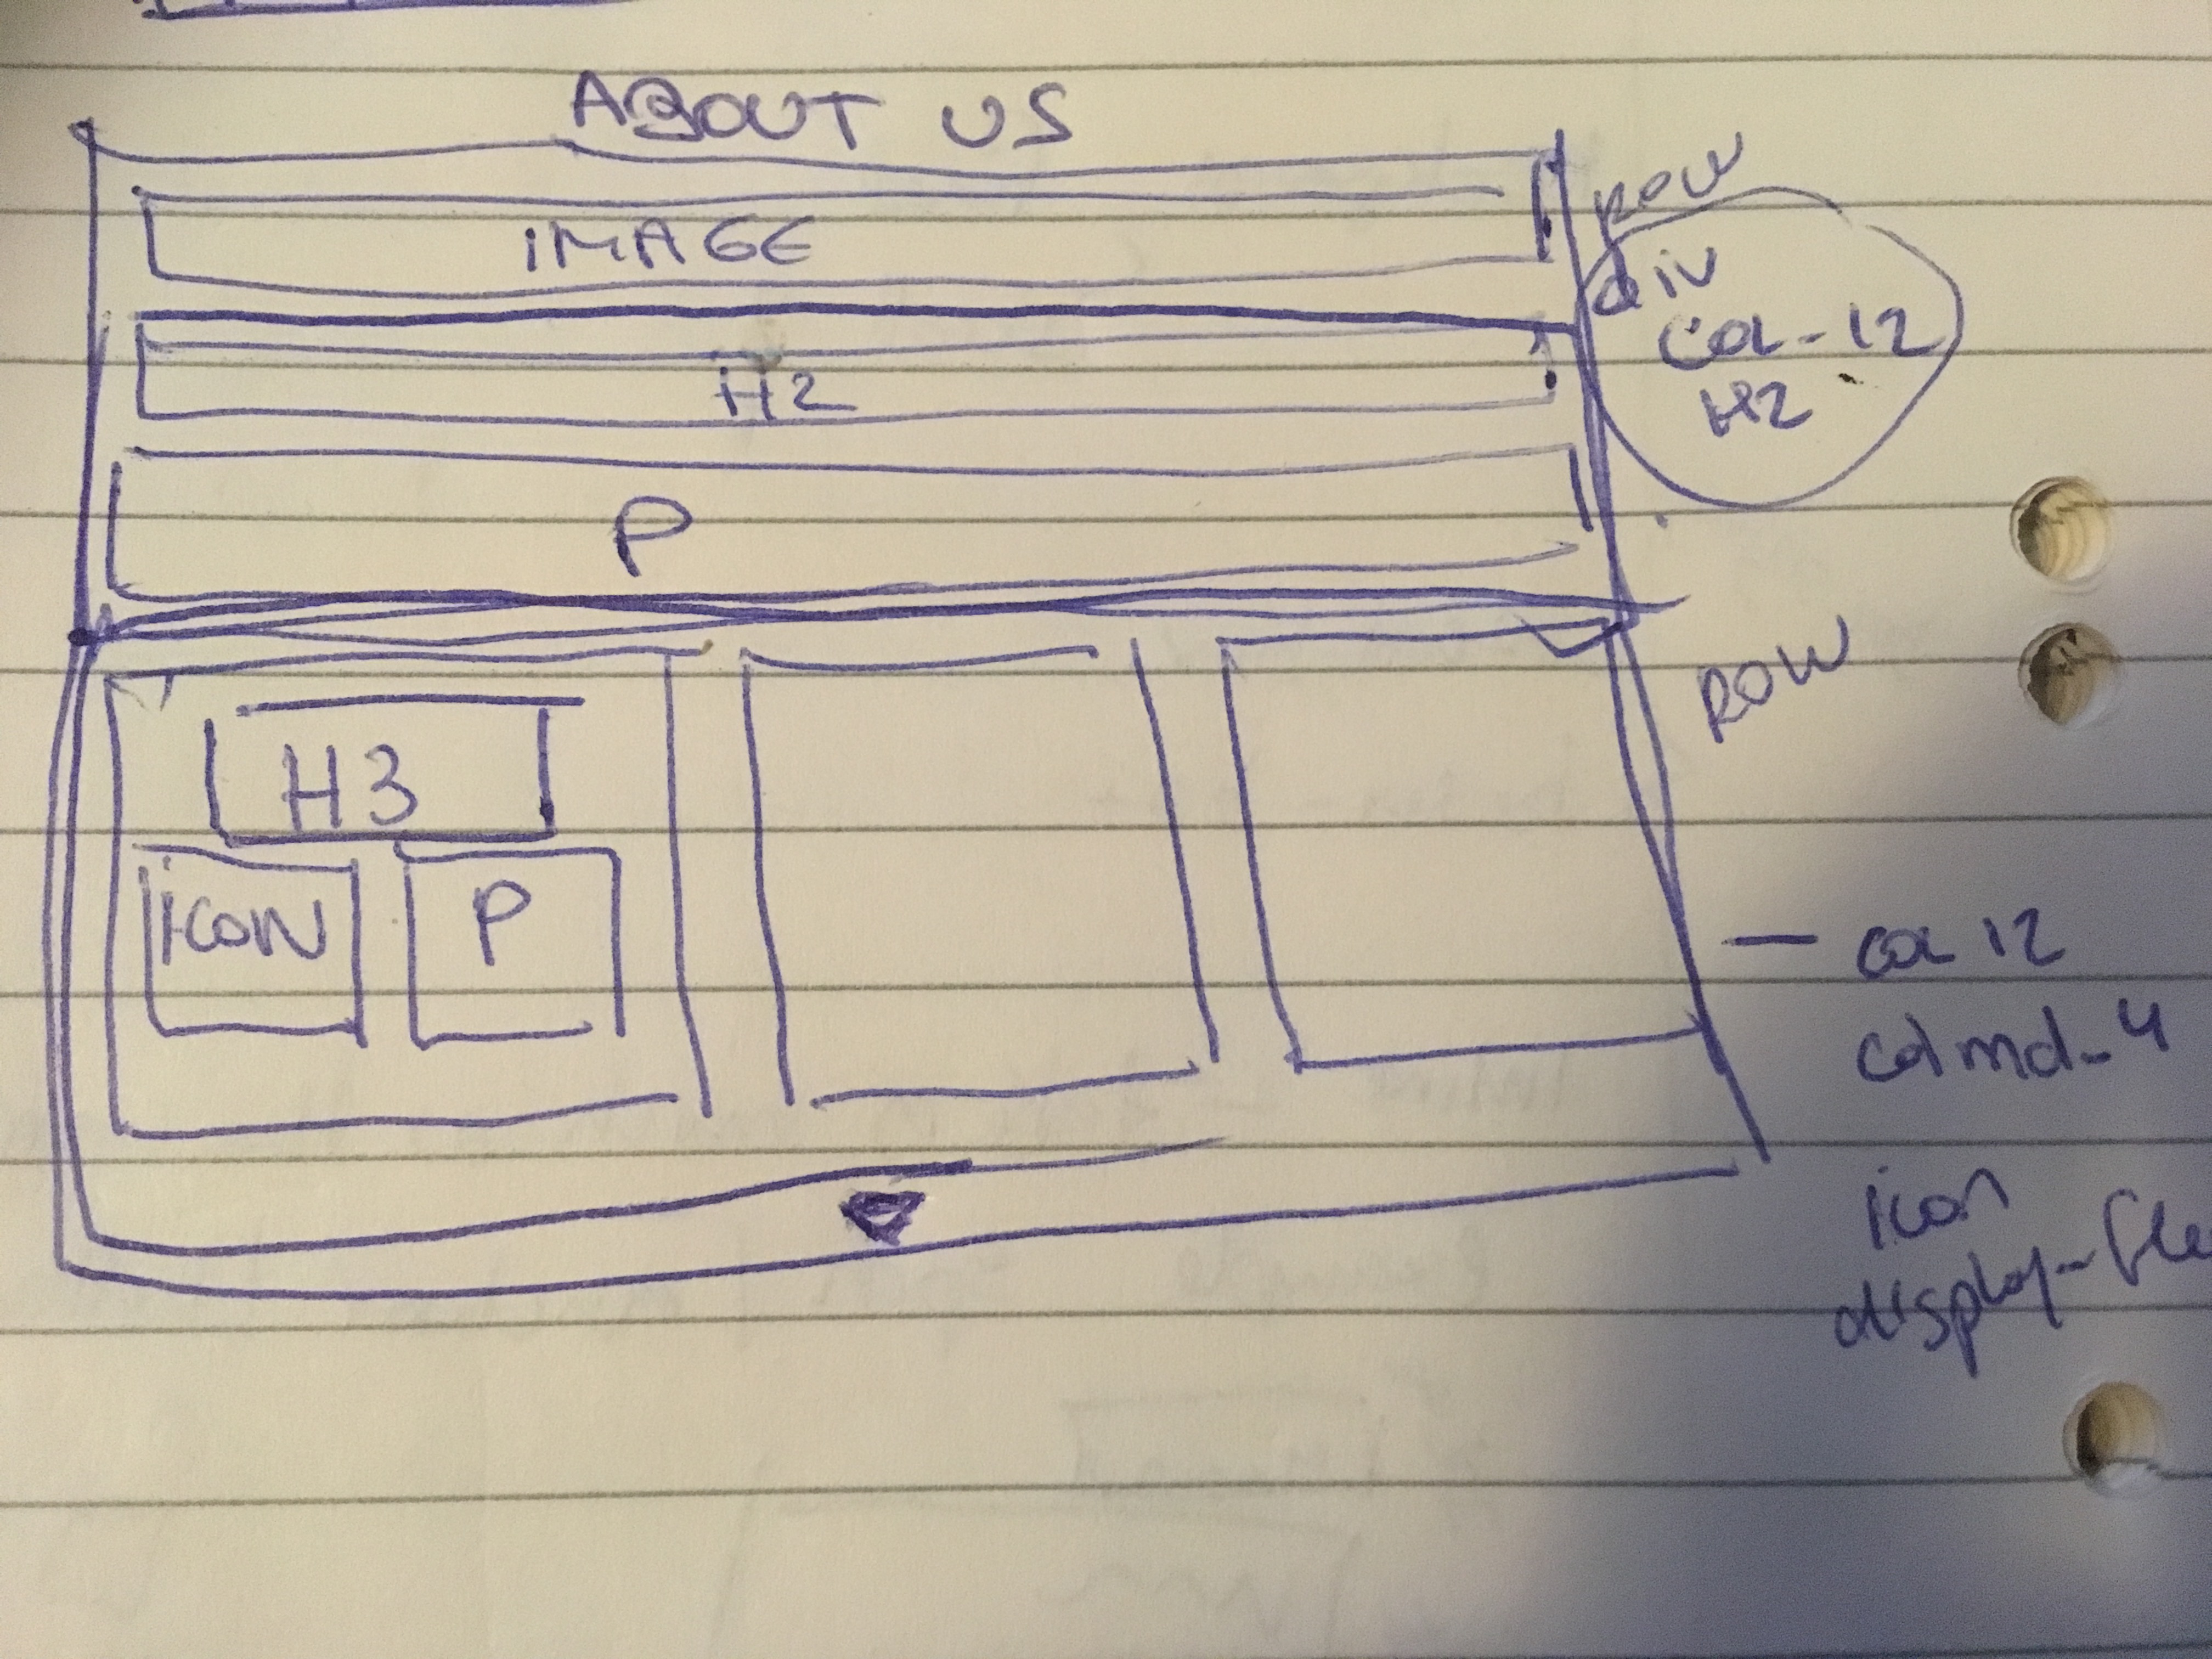 ABOUT US
ROW
IMAGE
div
COL-12
H2
H2
P
ROW
H3
ICON
P
col 12
col md-4
icon
display-fle